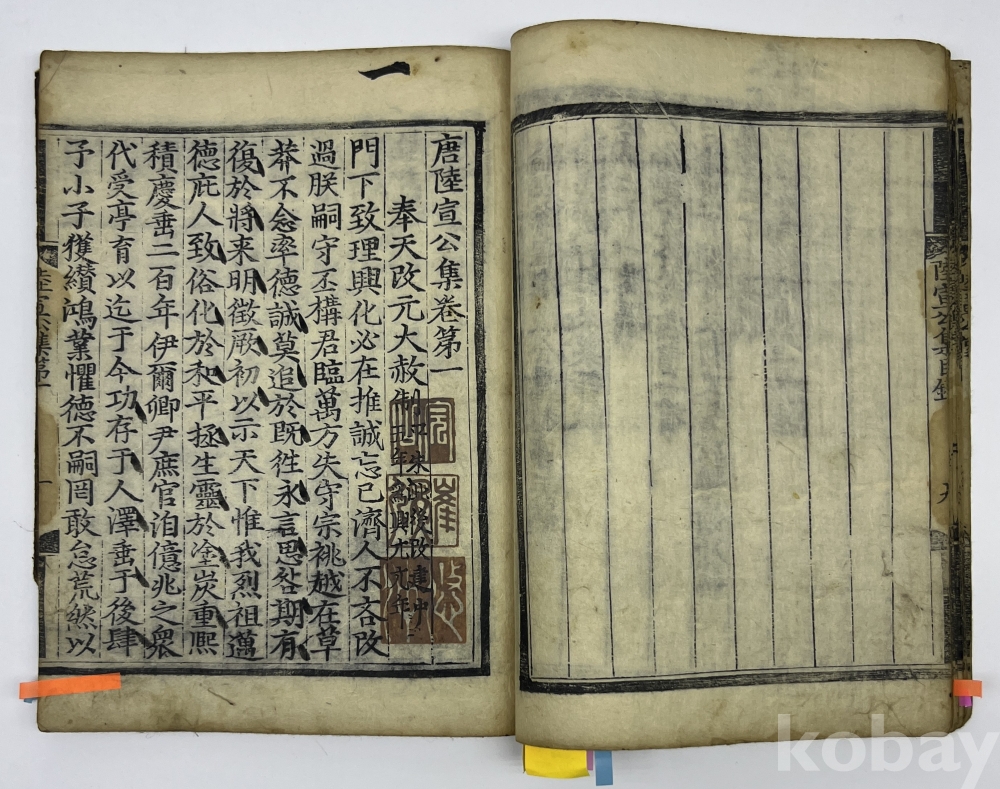 一
唐陸宣公集卷第一
奉天改元大赦制
門下致理興化必在推誠忘已濟人不吝改
過朕嗣守丕構君臨萬方失守宗祧越在草
莽不念率德誠莫追於既徃永言思咎期有
復於將来明徵厥初以示天下惟我烈祖邁
德庇人致俗化於和平拯生靈於塗炭重熙
積慶垂二百年伊爾卿尹庶官洎億兆之衆
代受亭育以迄于今功存于人澤垂于後肆
予小子獲纘鴻業懼德不嗣罔敢怠荒然以
陸宣公集第一
一
陸宣公集目錄
九
kobay